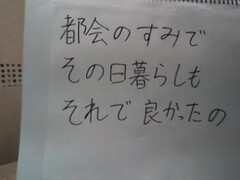 都会のすみで
その日暮らしも
それで良かったの